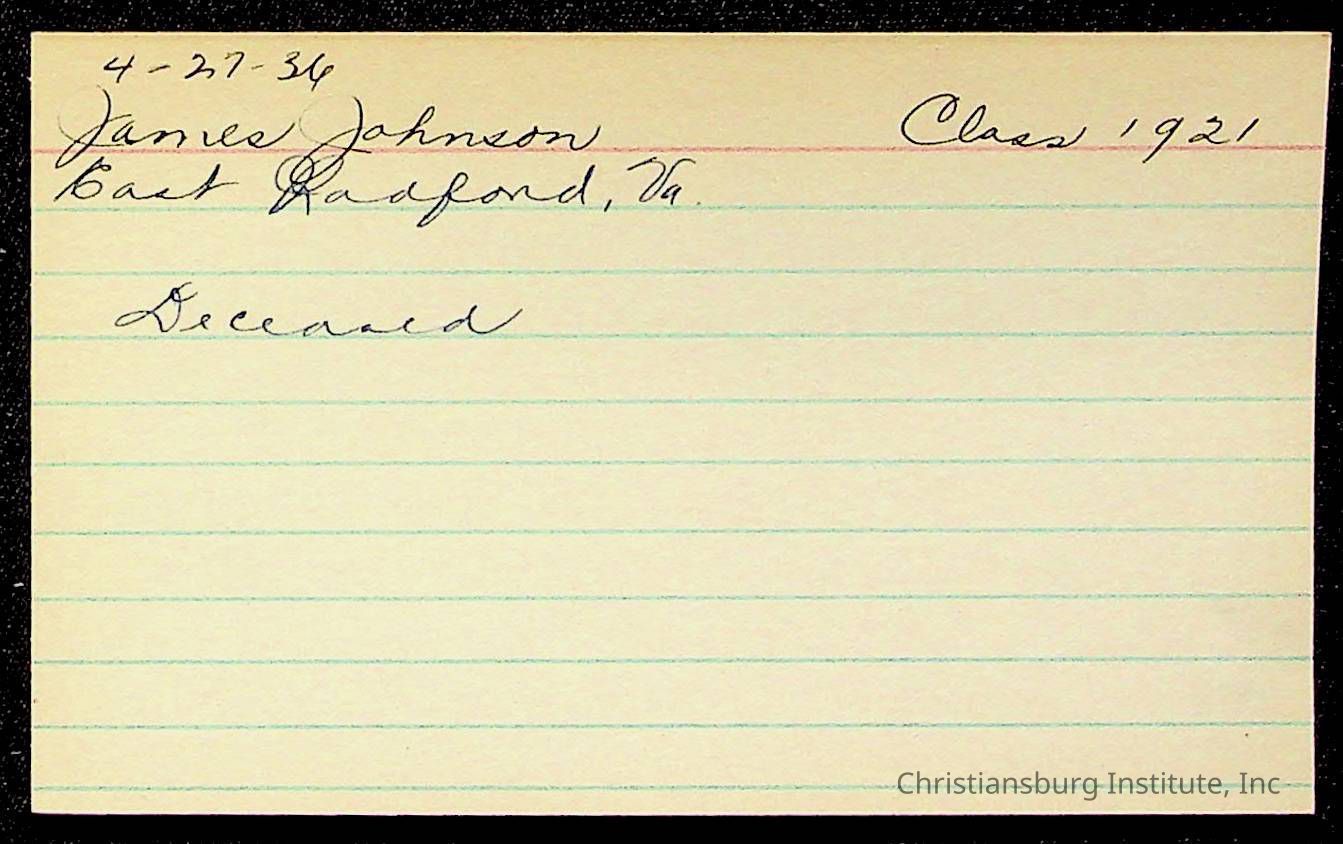 4-27-36
James Johnson Class 1921
East Radford, Va.
Deceased
Christiansburg Institute, Inc